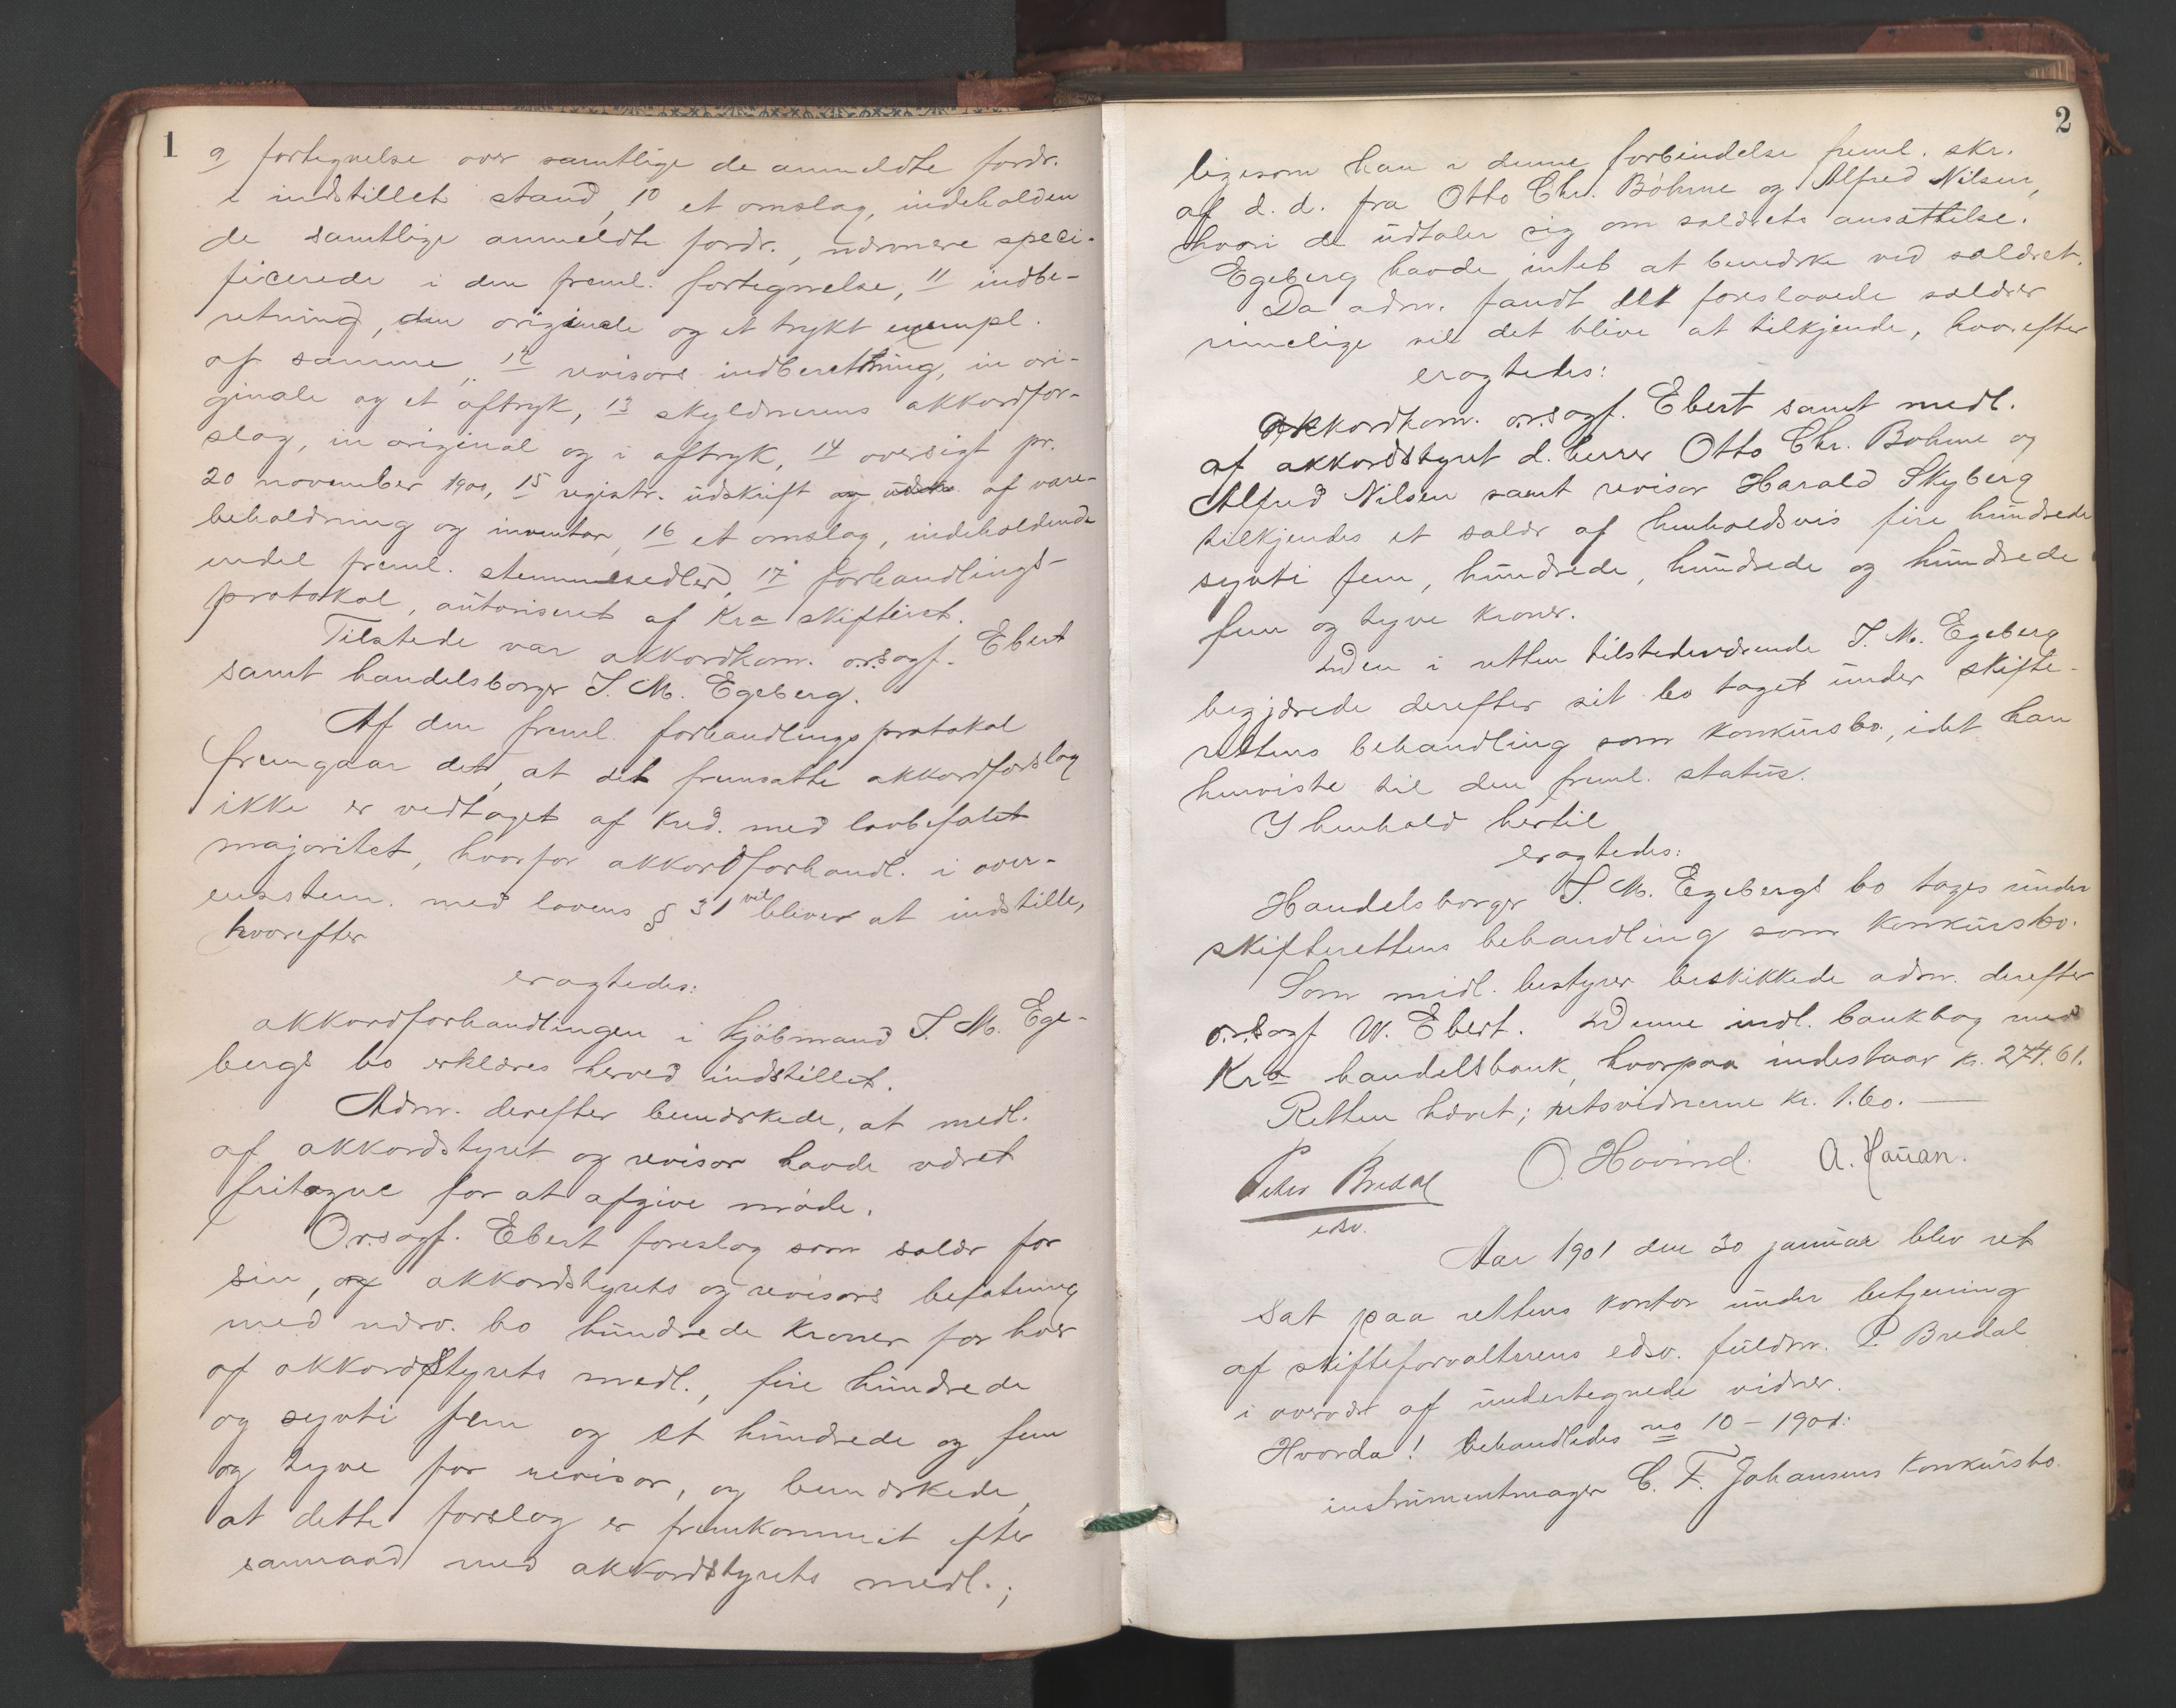 1
9 fortegnelse over samtlige de anmeldte fordr.
i indstillet stand, 10 et omslag, indeholden
de samtlige anmeldte fordr., nærmere speci-
ficerede i den freml. fortegnelse, 11 indbe-
retning, den originale og et trykt exempl.
af samme, 12 revisors indberetning, in ori-
ginale og et aftryk, 13 skyldnerens akkordfor-
slag, in original og i aftryk, 14 oversigt pr.
20 november 1900, 15 registr. udskrift af vare-
beholdning og inventar, 16 et omslag, indeholdende
endel freml. stemmesedler, 17 forhandlings-
protokol, autoriseret af Kra skifteret.
Tilstede var akkordkom. o.r.sagf. Ebert
samt handelsborger S. M. Egeberg.
Af den freml. forhandlingsprotokol
fremgaar det, at det fremsatte akkordforslag
ikke er vedtaget af kred. med lovbefalet
majoritet, hvorfor akkordforhandl. i over-
ensstem. med lovens § 31 vil bliver at indstille,
hvorefter
eragtedes:
akkordforhandlingen i kjøbmand S. M. Ege-
bergs bo erklæres herved indstillet.
Adm. derefter bemærkede, at medl.
af akkordstyret og revisor havde været
fritagne for at afgive møde.
O.r.sagf. Ebert foreslog som salær for
sin, og akkordstyrets og revisors befatning
med nærv. bo hundrede kroner for hver
af akkordstyrets medl., fire hundrede
og sytti fem og et hundrede og fem
og tyve for revisor, og bemærkede,
at dette forslag er fremkommet efter
samraad med akkordstyrets medl.;
2
ligesom han i denne forbindelse freml. skr.
af d. d. fra Otto Chr. Böhme og Alfred Nilsen,
hvori de udtaler sig om salærets ansættelse.
Egeberg havde intet at bemærke ved salæret.
Da adm. fandt det foreslaaede salærer
rimelige vil det blive at tilkjende, hvorefter
eragtedes:
Akkordkom. o.r.sagf. Ebert samt medl.
af akkordstyret d. herrer Otto Chr. Bohme og
Alfred Nilsen samt revisor Harald Skyberg
tilkjendes et salær af henholdsvis fire hundrede
sytti fem, hundrede, hundrede og hundrede
fem og tyve kroner.
Den i retten tilstedeværende S. M. Egeberg
begjærede derefter sit bo taget under skifte-
rettens behandling som konkursbo, idet han
henviste til den freml. status.
I henhold hertil
eragtedes:
Handelsborger S. M. Egebergs bo tages under
skifterettens behandling som konkursbo.
Som midl. bestyrer beskikkede adm. derefter
o.r.sagf W. Ebert. Denne indl. bankbog med
Kra handelsbank, hvorpaa indestaar kr. 274.61.
Retten hævet; retsvidnerne kr. 1.60.
Peter Bredal O. Hovind. A. Hauan.
edsv.
Aar 1901 den 30 januar blev ret
sat paa rettens kontor under betjening
af skifteforvalterens edsv. fuldm. P. Bredal
i overvær af undertegnede vidner.
Hvorda! behandledes no 10 – 1901:
instrumentmager C. F. Johansens konkursbo.